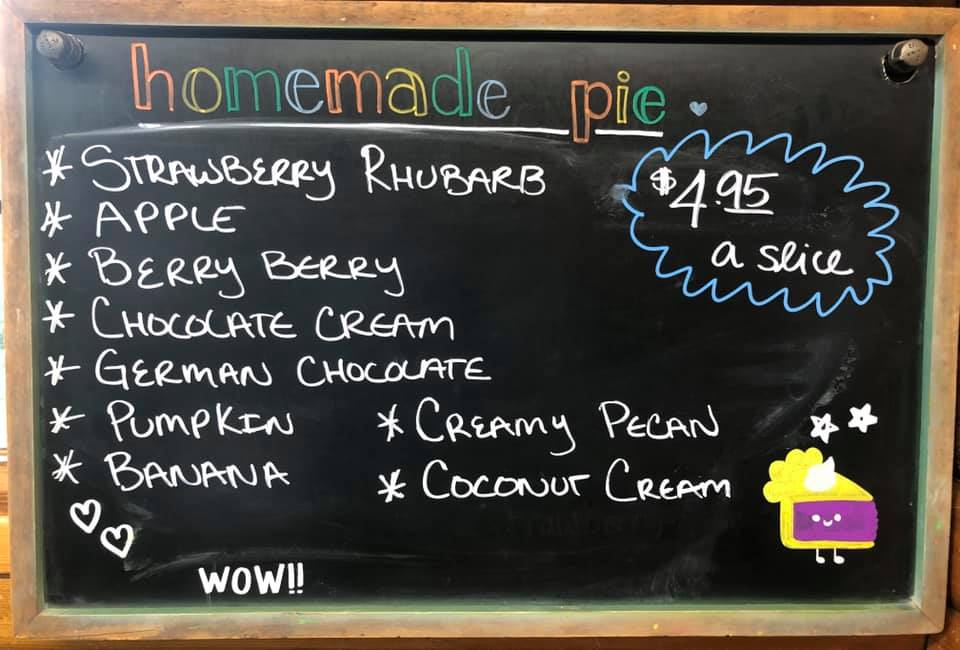 homemade pie
* STRAWBERRY RHUBARB
* APPLE
* BERRY BERRY
* CHOCOLATE CREAM
* GERMAN CHOCOLATE
* PUMPKIN
* BANANA
* CREAMY PECAN
* COCONUT CREAM
$4.95
a slice
WOW!!